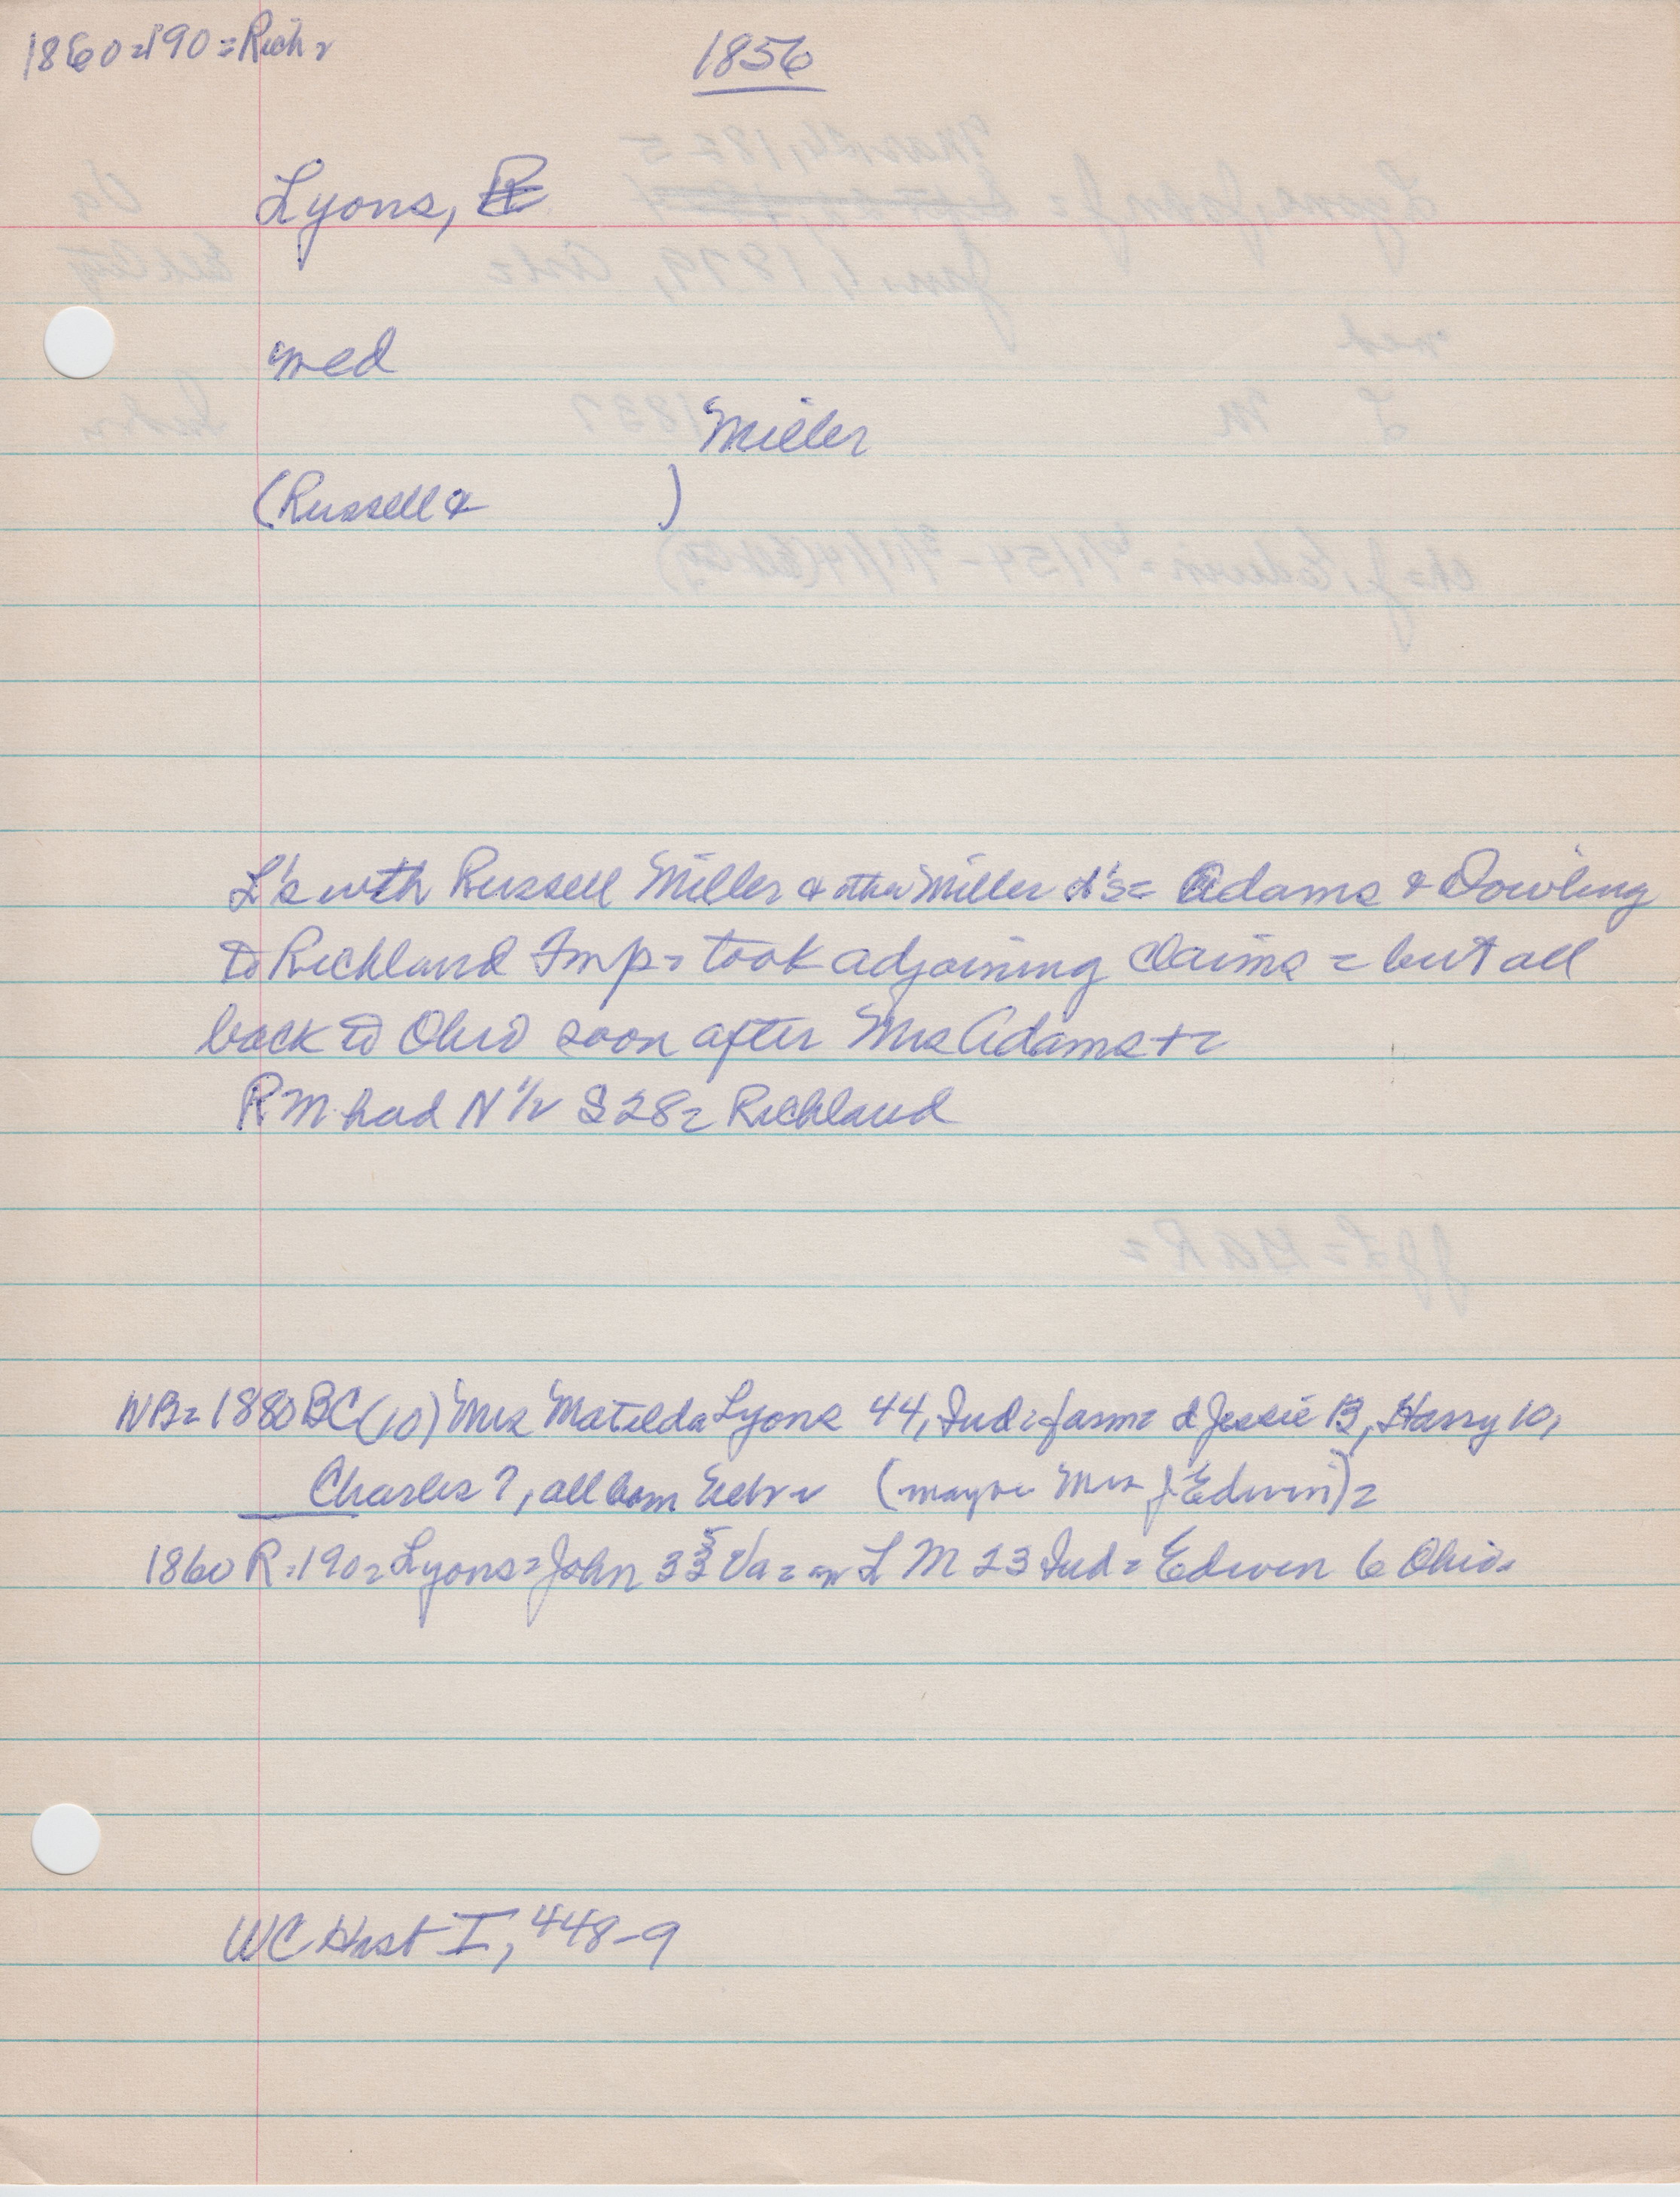 1860=190=Rich=
1856
Lyons, R
med
Miller
(Russell & )
L's with Russell Miller & other Miller d's= Adams & Dowling
to Richland Tmp= took adjoining claims = but all
back to Ohio soon after Mrs Adams +=
RM had N 1/2 S 28= Richland
NB= 1880 BC (10) Mrs Matilda Lyons 44, Ind= farm= d Jessie 13, Harry 10,
Charles 7, all born Nebr= (maybe Mrs J Edwin)=
1860 R=190= Lyons= John 35 Va= L M 23 Ind= Edwin 6 Ohio=
WC Hist I, 448-9